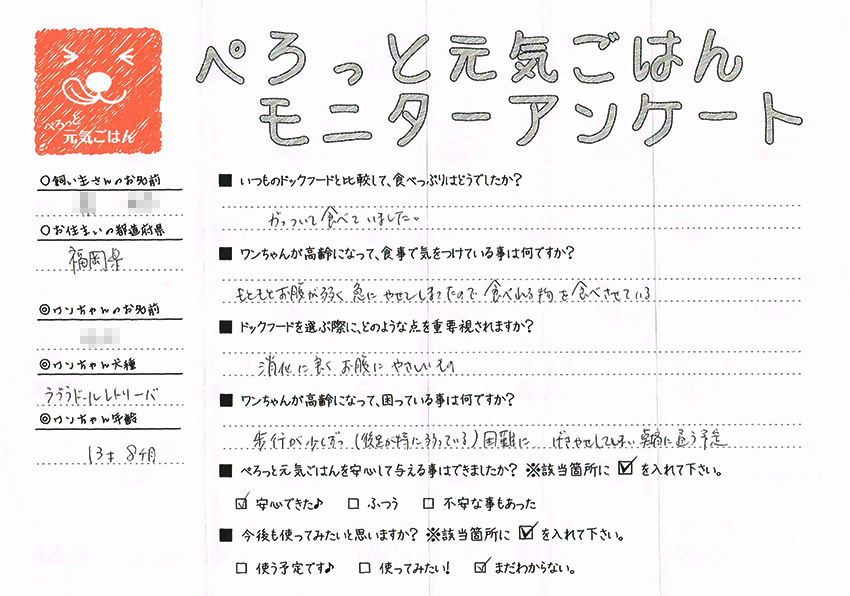 ぺろっと元気ごはん
モニターアンケート
ぺろっと
元気ごはん
○飼い主さんのお名前
○お住まいの都道府県
福岡県
◎ワンちゃんのお名前
◎ワンちゃん犬種
ラブラドールレトリーバ
◎ワンちゃん年齢
13才 8ヶ月
■ いつものドックフードと比較して、食べっぷりはどうでしたか?
がっついて食べていました。
■ ワンちゃんが高齢になって、食事で気をつけている事は何ですか?
もともとお腹が弱く 急に やせてしまったので 食べれる物を食べさせている
■ ドックフードを選ぶ際に、どのような点を重要視されますか?
消化に良く お腹に やさしいもの
■ ワンちゃんが高齢になって、困っている事は何ですか?
歩行が少しずつ(後足が特に弱っている)困難に げきやせしてしまい 病院に通う予定
■ ぺろっと元気ごはんを安心して与える事はできましたか? ※該当箇所に ☑ を入れて下さい。
☑ 安心できた♪ □ ふつう □ 不安な事もあった
■ 今後も使ってみたいと思いますか? ※該当箇所に ☑ を入れて下さい。
□ 使う予定です♪ □ 使ってみたい! ☑ まだわからない。